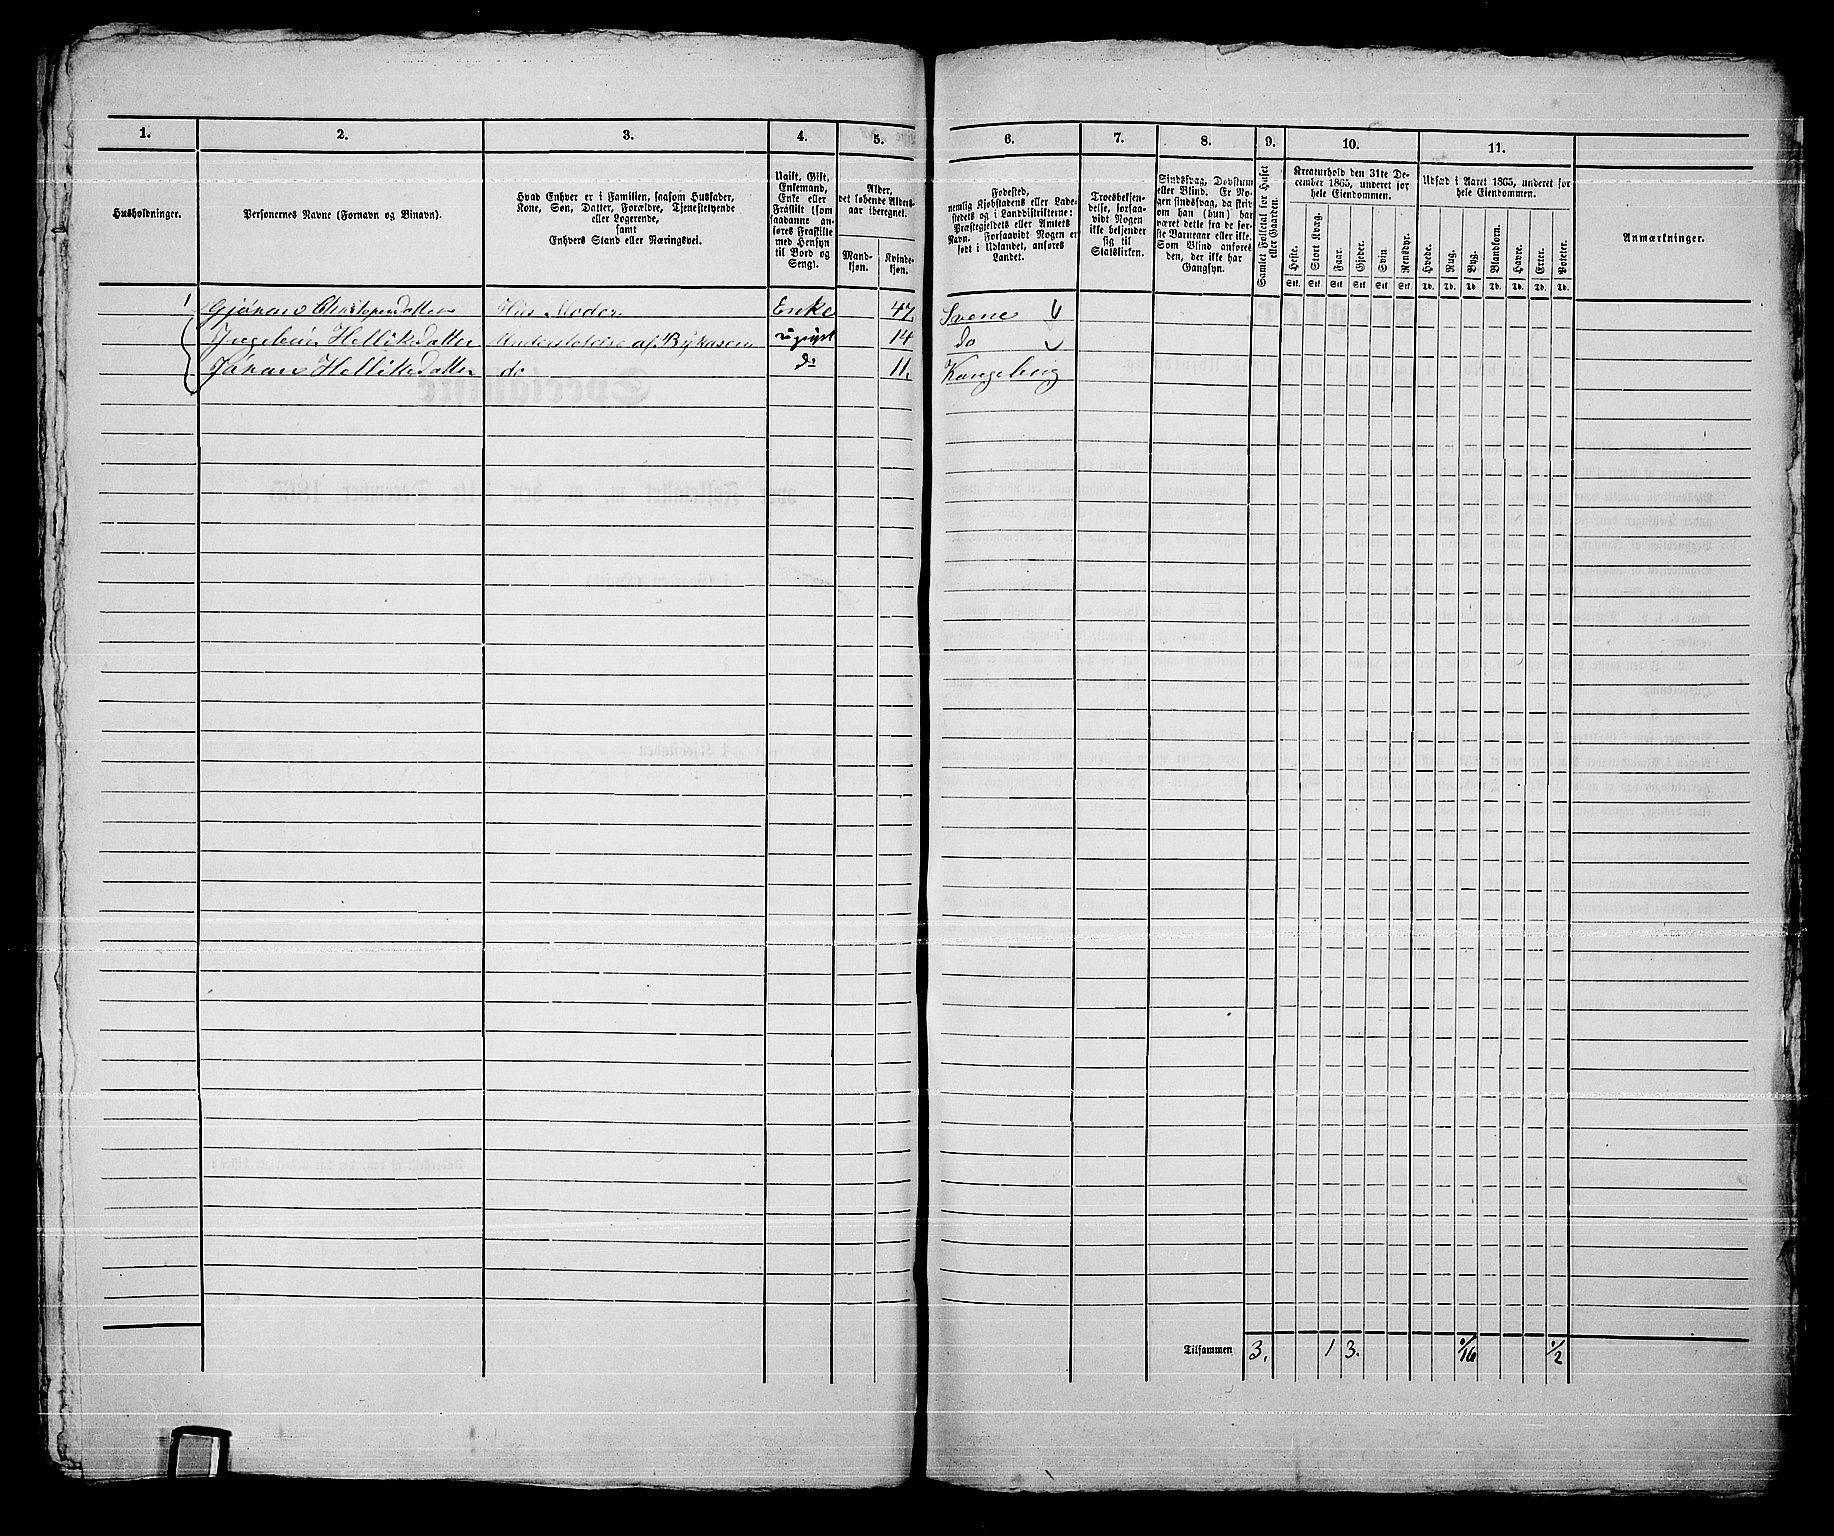 1. 2. 3. 4. 5. 6. 7. 8. 9. 10. 11.
Husholdninger.
Personernes Navne (Fornavn og Binavn).
Hvad Enhver er i Familien, saasom Husfader,
Kone, Søn, Datter, Forældre, Tjenestetyende
eller Logerende,
samt
Enhvers Stand eller Næringsvei.
Ugift, Gift,
Enkemand,
Enke eller
Fraskilt (som
saadanne an-
føres Fraskilte
med Hensyn
til Bord og
Seng).
Alder,
det løbende Alders-
aar iberegnet.
Mand-
kjøn.
Kvinde-
kjøn.
Fødested,
nemlig Kjøbstadens eller Lade-
stedets og i Landdistrikterne:
Præstegjeldets eller Amtets
Navn. Forsaavidt Nogen er
født i Udlandet, anføres
Landet.
Troesbekjen-
delse, forsaa-
vidt Nogen
ikke bekjender
sig til
Statskirken.
Sindssvag, Døvstum
eller Blind. Er No-
gen sindssvag, da skriv
om han (hun) har
været dette fra de før-
ste Barneaar eller ikke.
Som Blind anføres
den, der ikke har
Gangsyn.
Samlet Folketal for Huset
eller Gaarden.
Kreaturhold den 31te De-
cember 1865, underet for
hele Eiendommen.
Heste. Stort Kvæg. Faar. Gjeder. Svin. Rensdyr.
Stk. Stk. Stk. Stk. Stk. Stk.
Udsæd i Aaret 1865, underet for
hele Eiendommen.
Hvede. Rug. Byg. Blankorn. Havre. Erter. Poteter.
Td. Td. Td. Td. Td. Td. Td.
Anmærkninger.
1 Gjøran Christopersdatter Hus Moder Enke 47 Svene
Ingebor Helliksdatter Understøttes af Bykassen ugivt 14 do
Jøran Helliksdatter do do 11. Kongsberg
Tilsammen 3. 1 3. 1/16 1/2